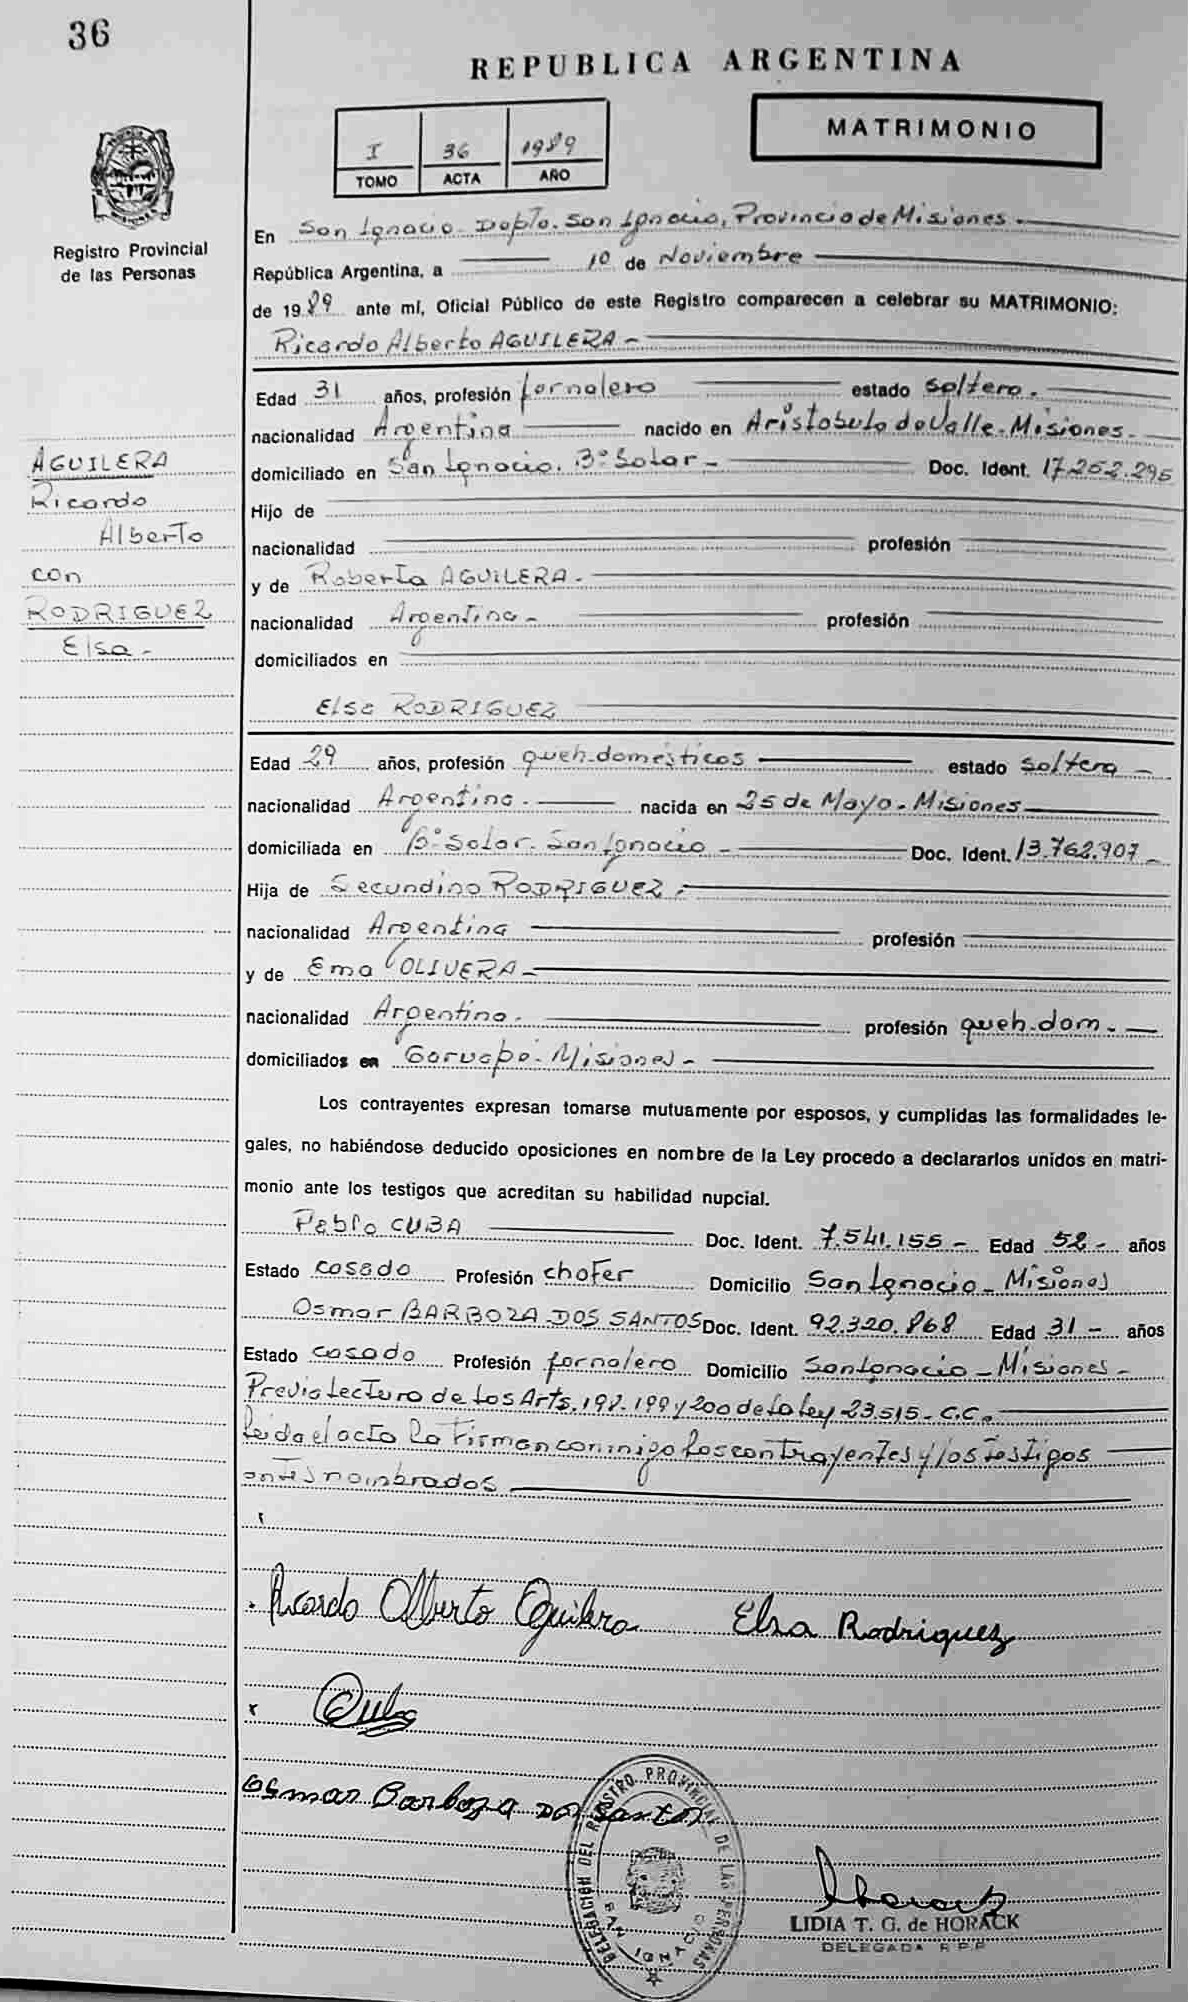 36
REPUBLICA ARGENTINA
MATRIMONIO
I 36 1989
TOMO ACTA AÑO
Registro Provincial
de las Personas
En San Ignacio - Dopto. San Ignacio, Provincia de Misiones.
República Argentina, a 10 de Noviembre
de 1989 ante mí, Oficial Público de este Registro comparecen a celebrar su MATRIMONIO:
Ricardo Alberto AGUILERA -
Edad 31 años, profesión Jornalero estado soltero.
nacionalidad Argentina nacido en Aristobulo del Valle - Misiones -
domiciliado en San Ignacio. 3º Solar - Doc. Ident. 17.252.295
Hijo de
nacionalidad profesión
y de Roberta AGUILERA -
nacionalidad Argentina - profesión
domiciliados en
AGUILERA
Ricardo
Alberto
con
RODRIGUEZ
Elsa -
Elsa RODRIGUEZ
Edad 29 años, profesión queh-domésticos estado soltera -
nacionalidad Argentina. nacida en 25 de Mayo - Misiones
domiciliada en Solar. San Ignacio - Doc. Ident. 13.762.907 -
Hija de Secundino RODRIGUEZ -
nacionalidad Argentina profesión
y de Ema OLIVERA -
nacionalidad Argentina. profesión queh-dom.
domiciliados en Garuapé - Misiones -
Los contrayentes expresan tomarse mutuamente por esposos, y cumplidas las formalidades le-
gales, no habiéndose deducido oposiciones en nombre de la Ley procedo a declararlos unidos en matri-
monio ante los testigos que acreditan su habilidad nupcial.
Pablo CUBA Doc. Ident. 7.541.155 - Edad 52 - años
Estado casado Profesión chofer Domicilio San Ignacio - Misiones
Osmar BARBOZA DOS SANTOS Doc. Ident. 92.320.868 Edad 31 - años
Estado casado Profesión jornalero Domicilio San Ignacio - Misiones -
Previa Lectura de Los Arts. 198. 199 y 200 de la Ley 23.515 - C.C.
Leida el acta la Firman conmigo Los contrayentes y los testigos
antes nombrados
Ricardo Alberto Aguilera Elsa Rodriguez
Cuba
Osmar Barboza Dos Santos
DELEGACIÓN DEL REGISTRO PROVINCIAL DE LAS PERSONAS
SAN IGNACIO
LIDIA T. G. de HORACK
DELEGADA R.P.P